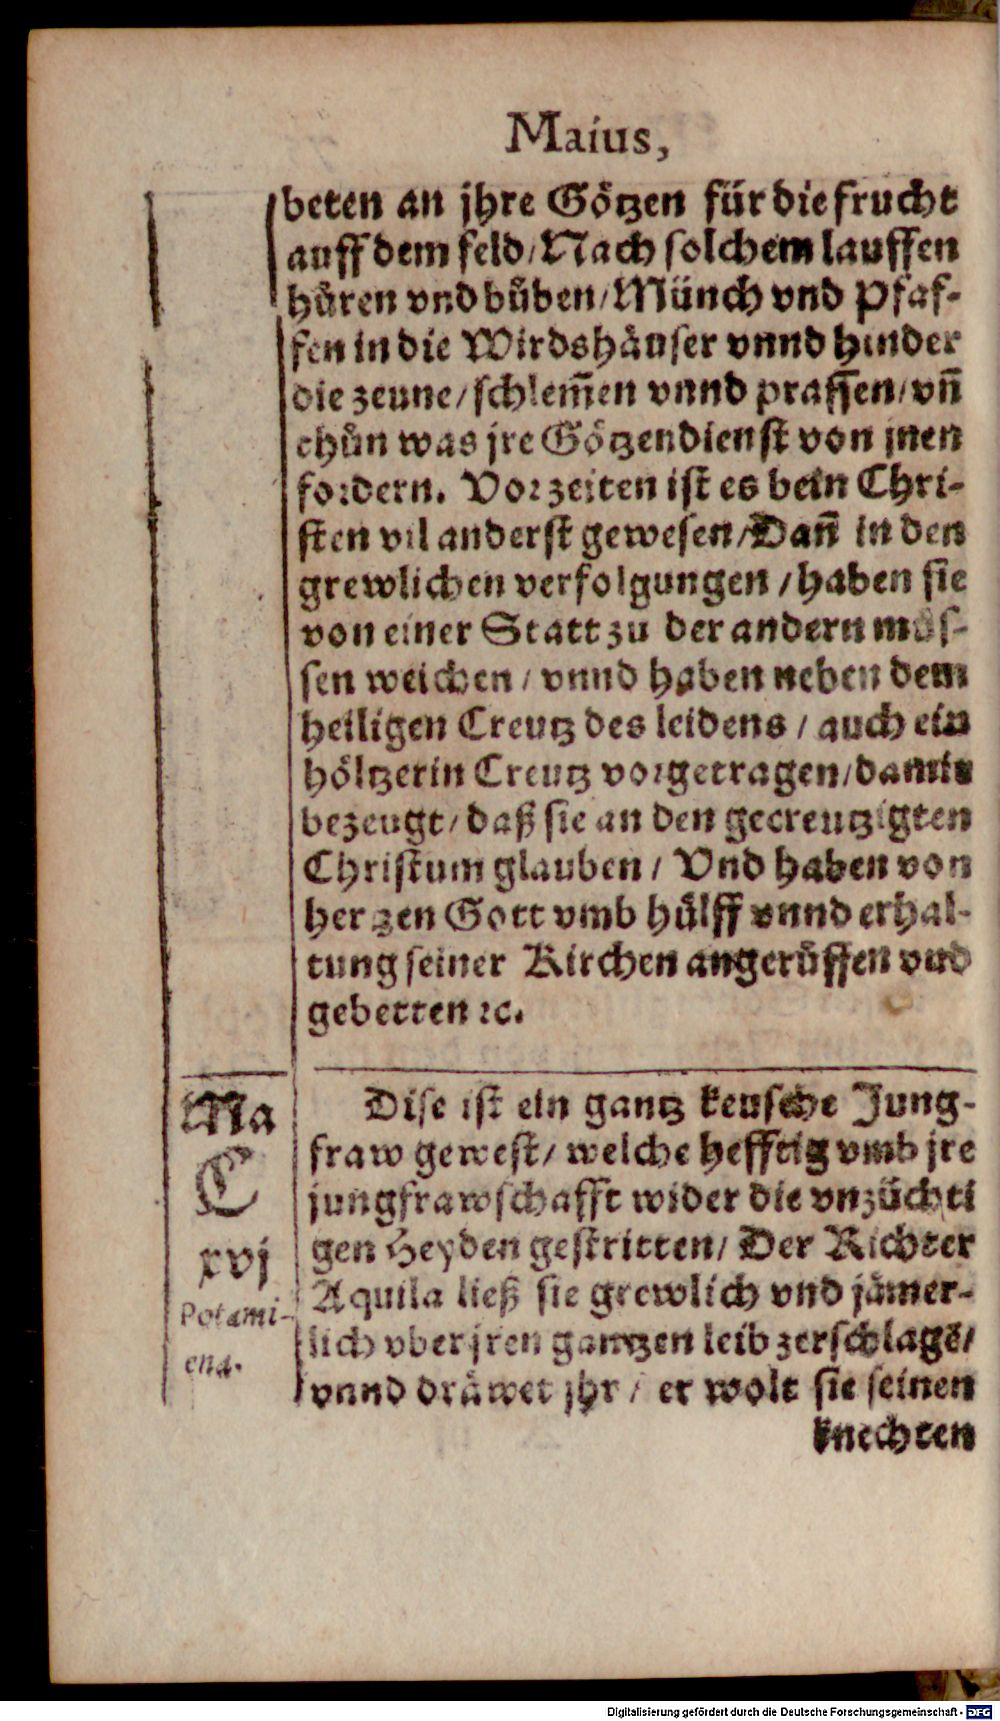 Maius,
beten an jhre Götzen für die frucht
auff dem feld/ Nach solchem lauffen
hůren vnd bůben/ Münch vnd Pfaf-
fen in die Wirdshåuser vnnd hinder
die zeune/ schlem̃en vnnd prassen/ vñ
thůn was jre Götzendienst von jnen
fordern. Vorzeiten ist es bein Chri-
sten vil anderst gewesen/ Dañ in den
grewlichen verfolgungen / haben sie
von einer Statt zu der andern müs-
sen weichen / vnnd haben neben dem
heiligen Creutz des leidens / auch ein
höltzerin Creutz vorgetragen/ damit
bezeugt/ daß sie an den gecreutzigten
Christum glauben / Vnd haben von
hertzen Gott vmb hülff vnnd erhal-
tung seiner Kirchen angerůffen vnd
gebetten ꝛc.
Ma
C
xvj
Potami-
ena.
Dise ist ein gantz keusche Jung-
fraw gewest/ welche hefftig vmb jre
jungfrawschafft wider die vnzüchti
gen Heyden gestritten/ Der Richter
Aquila ließ sie grewlich vnd jåmer-
lich vber jren gantzen leib zerschlagē/
vnnd dråwet jhr / er wolt sie seinen
knechten
Digitalisierung gefördert durch die Deutsche Forschungsgemeinschaft - DFG